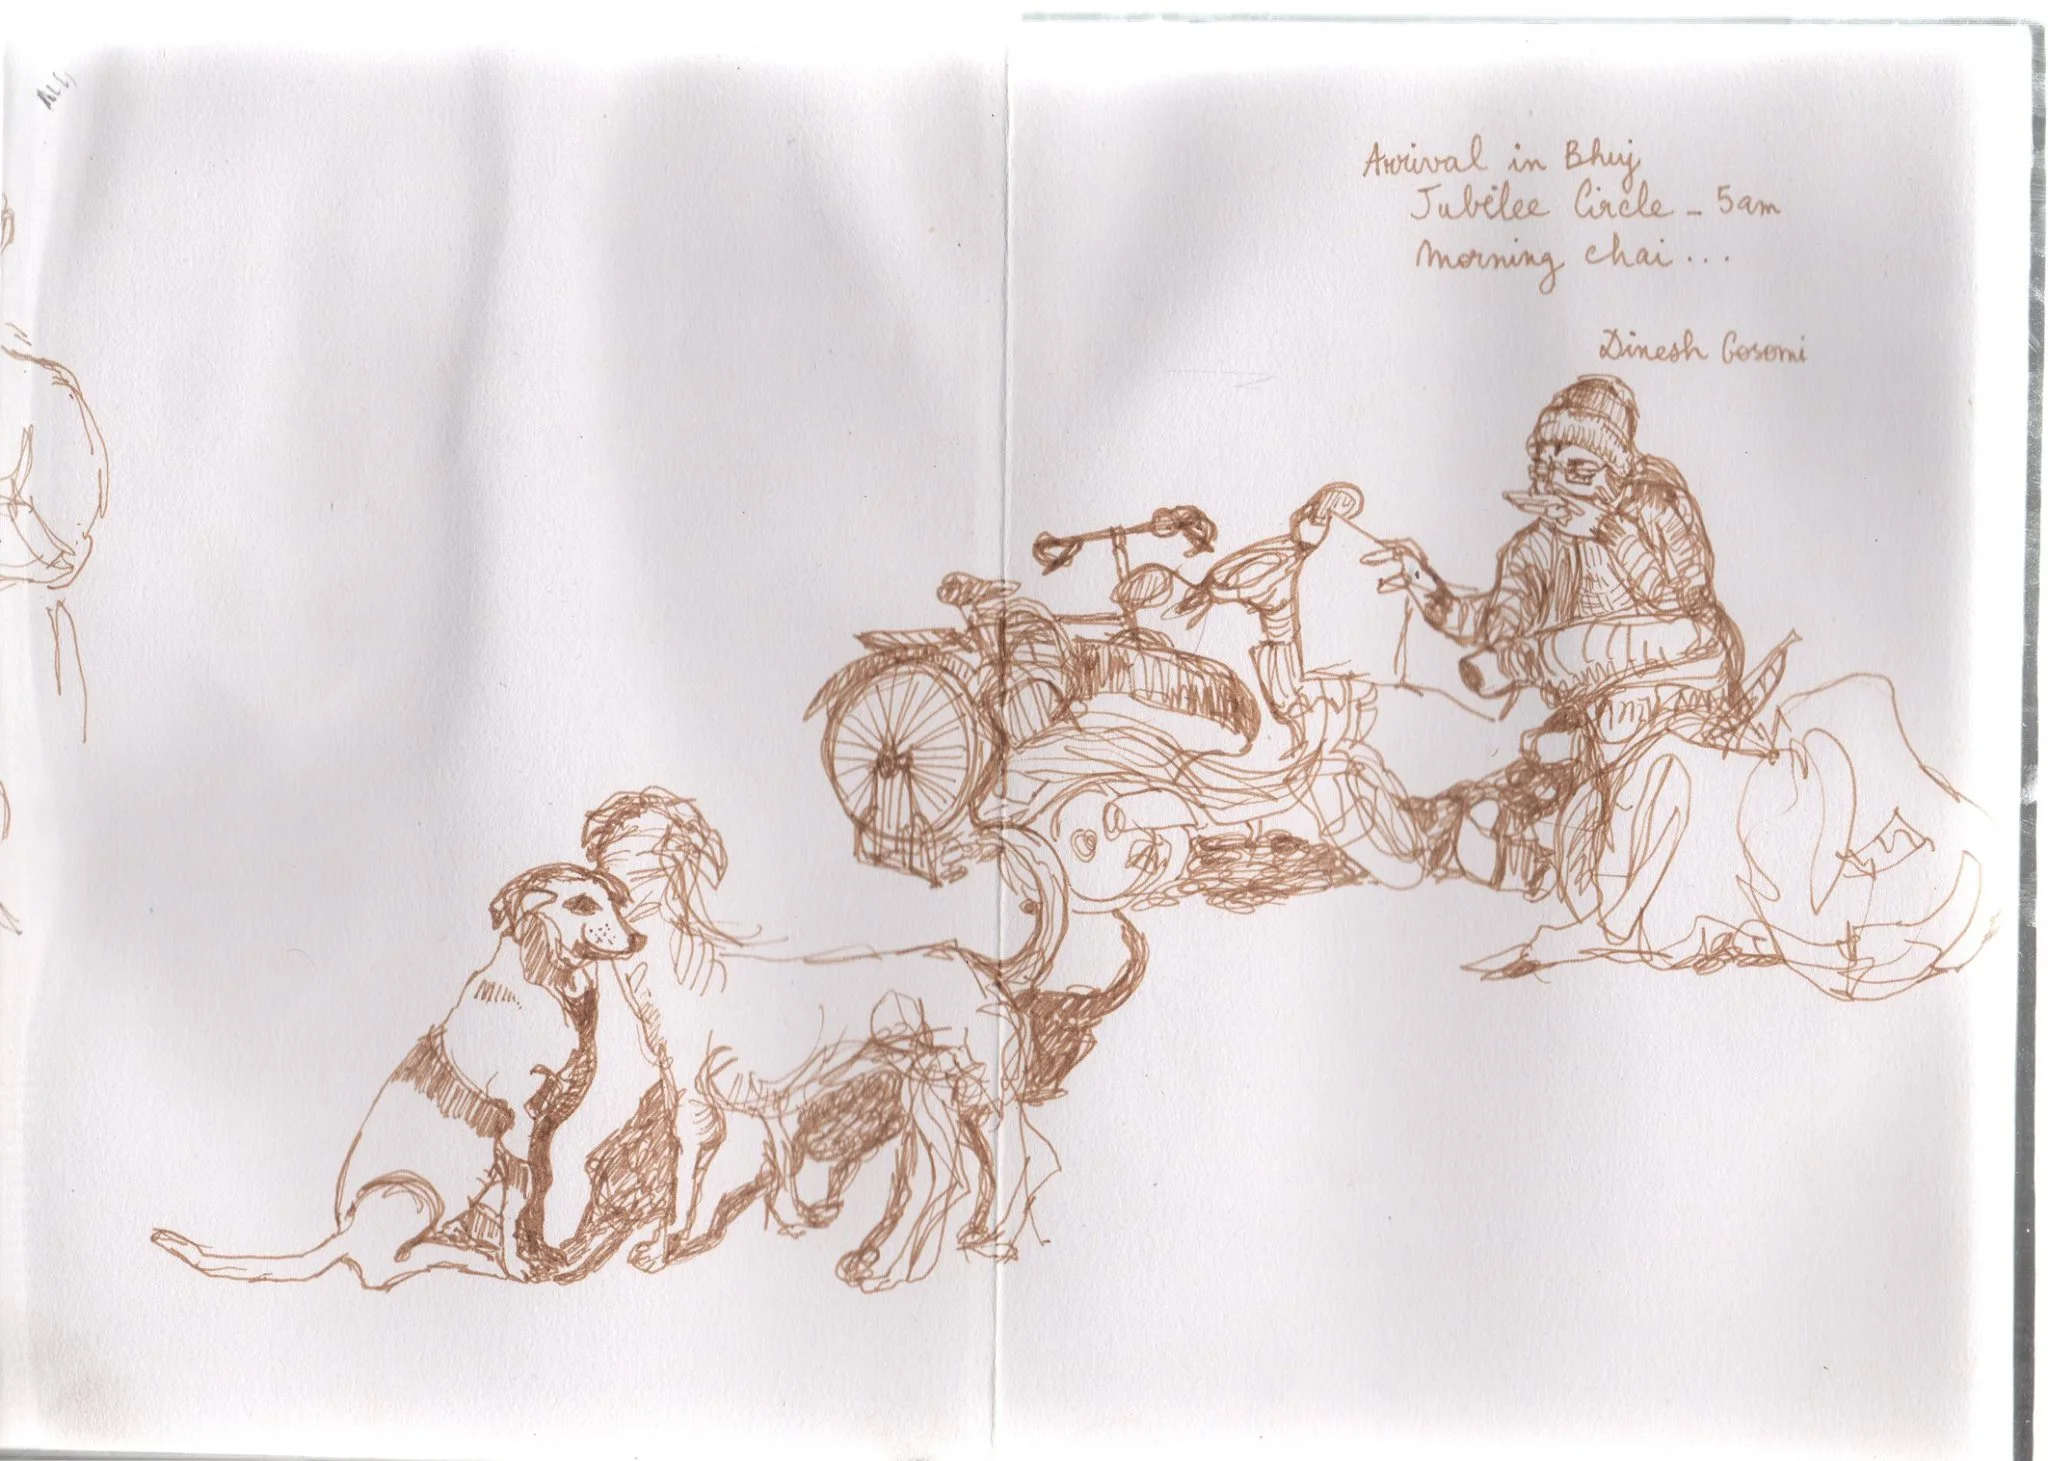 Arrival in Bhuj
Jubilee Circle - 5am
morning chai...
Dinesh Gosomi